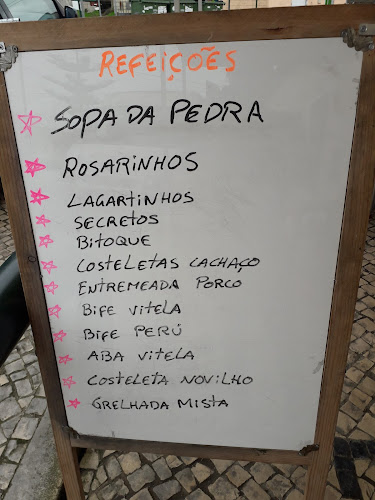 REFEIÇÕES
SOPA DA PEDRA
ROSARINHOS
LAGARTINHOS
SECRETOS
BITOQUE
COSTELETAS CACHAÇO
ENTREMEADA PORCO
BIFE VITELA
BIFE PERÚ
ABA VITELA
COSTELETA NOVILHO
GRELHADA MISTA